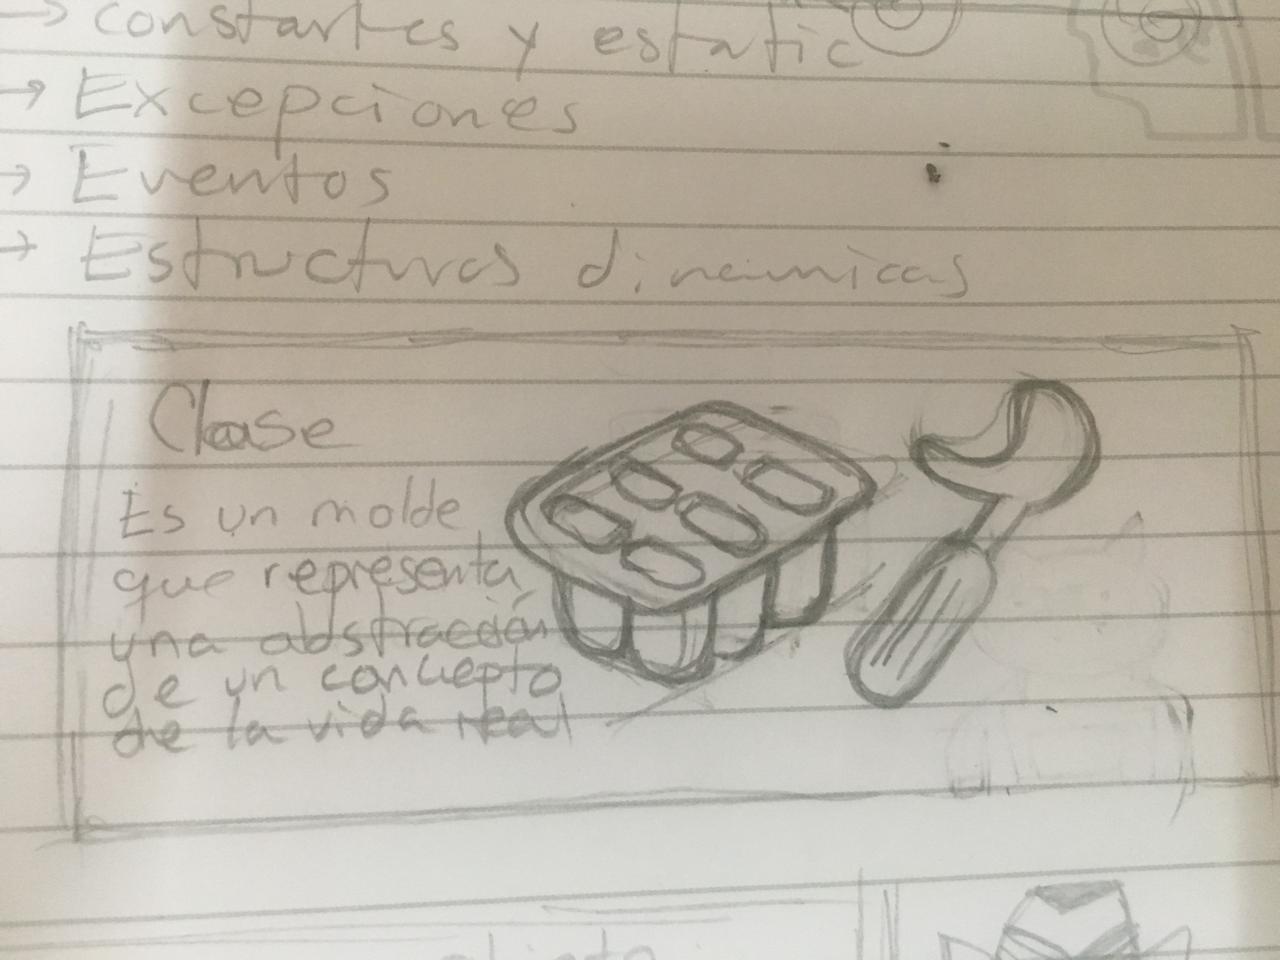 → constantes y estatic
→ Excepciones
→ Eventos
→ Estructuras dinamicas
Clase
Es un molde
que representa
una abstracción
de un concepto
de la vida real